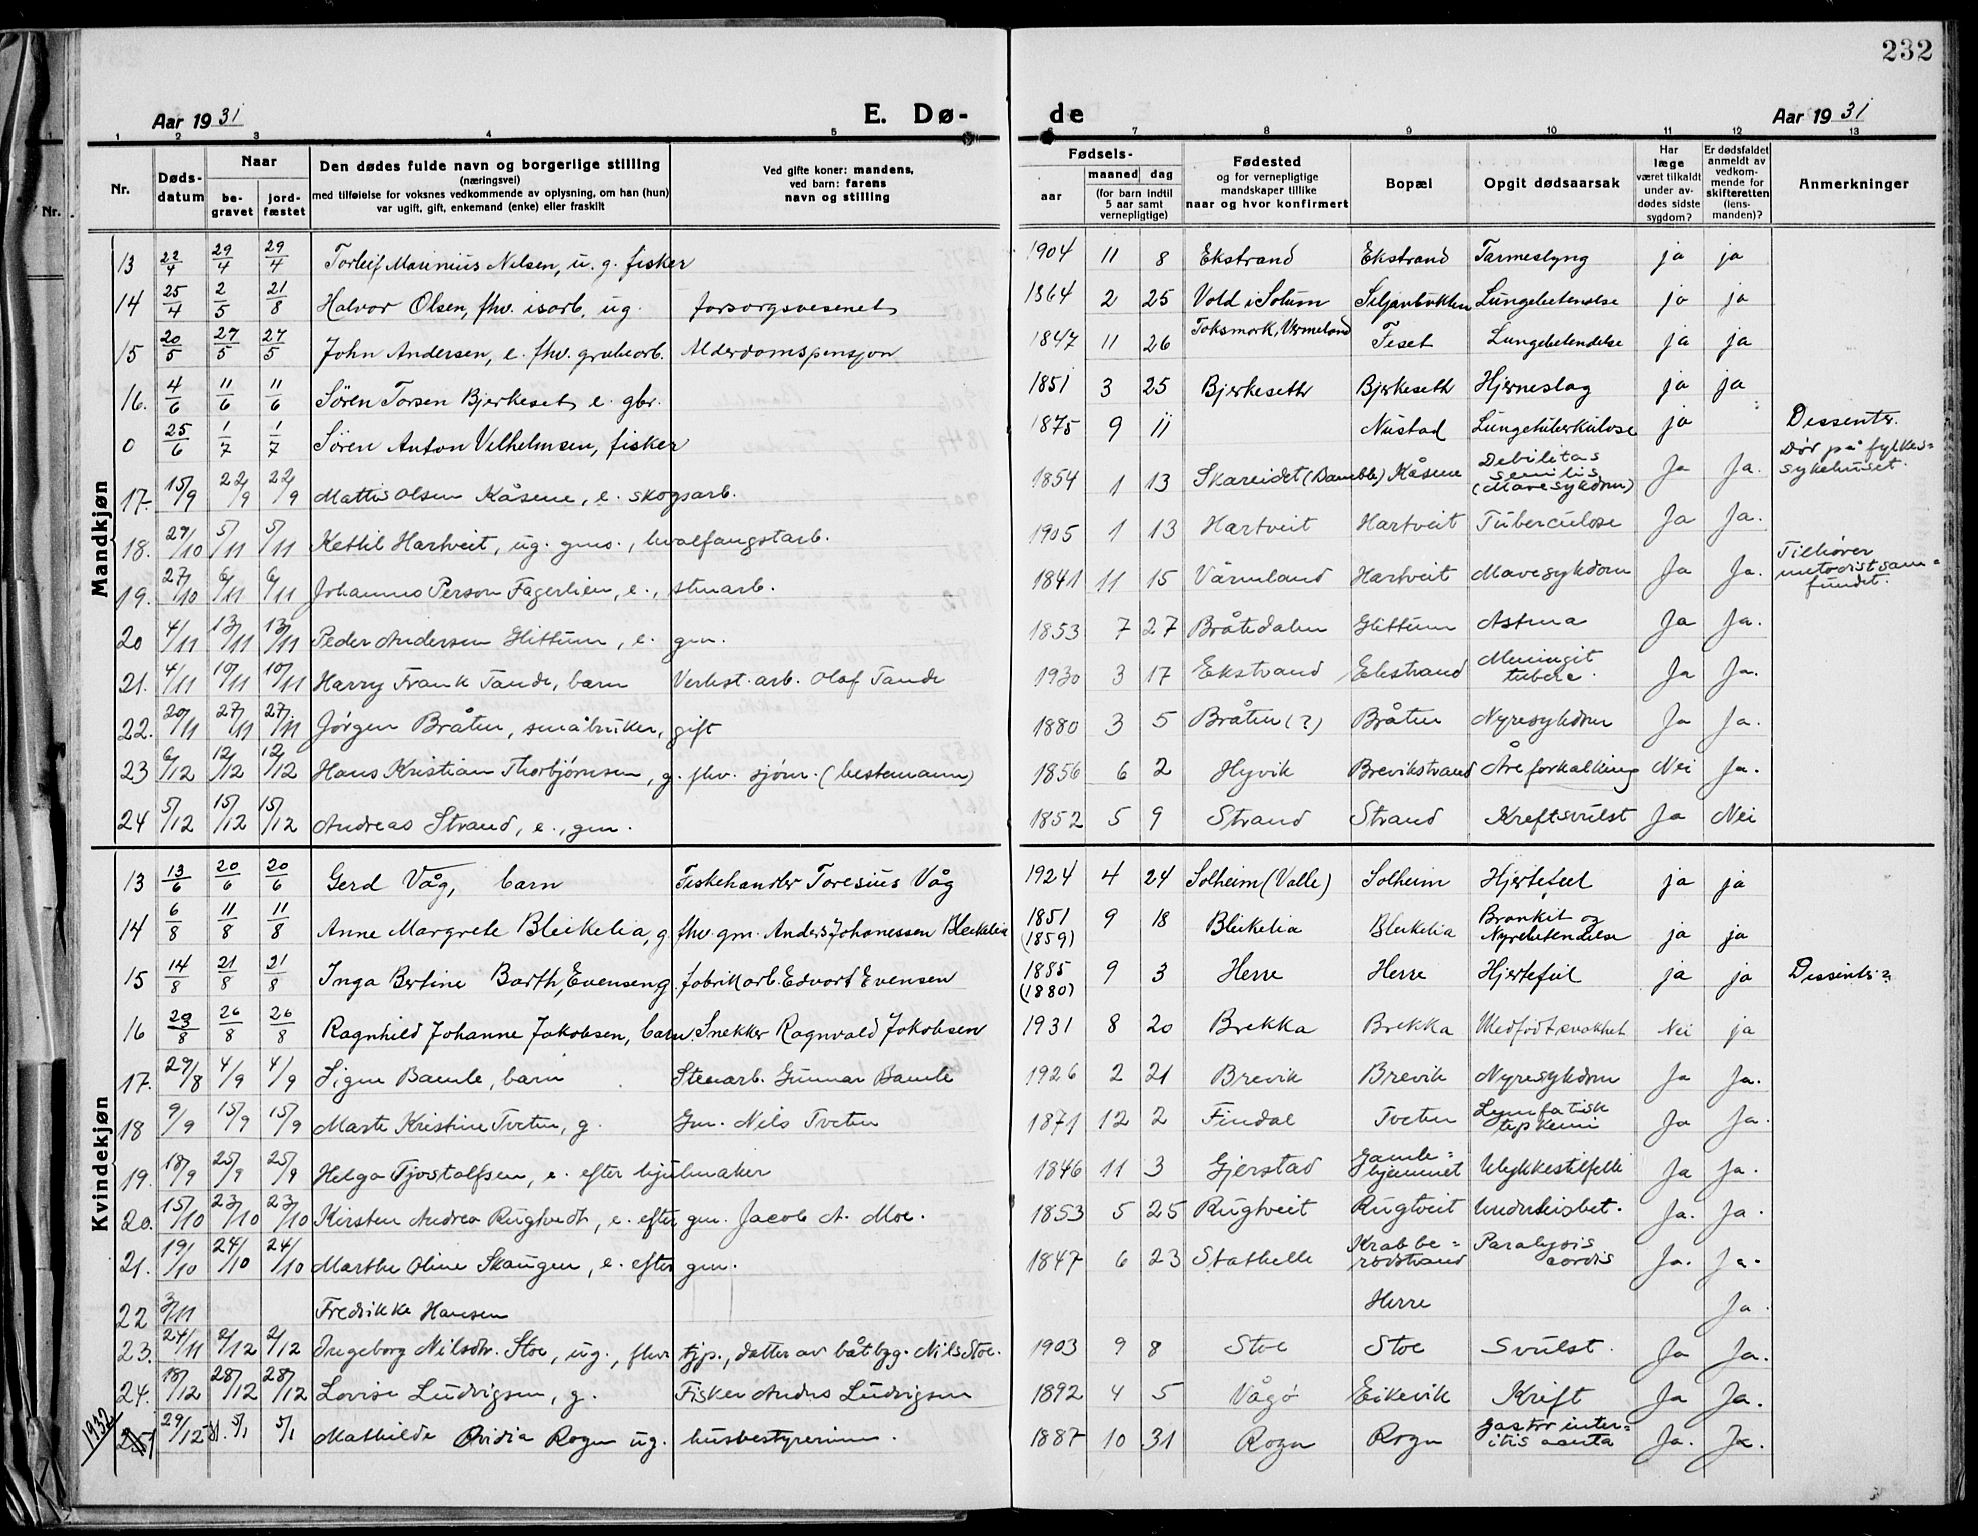 232
Aar 1931 E. Dø-
de Aar 1931
1 2 3 4 5 6 7 8 9 10 11 12 13
Nr. Døds-datum Naar begravet jordfæstet Den dødes fulde navn og borgerlige stilling (næringsvei) med tilføielse for voksnes vedkommende av oplysning, om han (hun) var ugift, gift, enkemand (enke) eller fraskilt Ved gifte koner: mandens, ved barn: farens navn og stilling
Fødsels- aar maaned dag (for barn indtil 5 aar samt vernepligtige) Fødested og for vernepligtige mandskaper tillike naar og hvor konfirmert Bopæl Opgit dødsaarsak Har læge været tilkaldt under avdødes sidste sygdom? Er dødsfaldet anmeldt av vedkommende for skifteretten (lensmanden)? Anmerkninger
Mandkjøn
13 22/4 29/4 29/4 Torleif Marinius Nilsen, u. g. fisker 1904 11 8 Ekstrand Ekstrand Tarmeslyng ja ja
14 25/4 2/5 21/8 Halvor Olsen, fhv. isarb. ug. forsorgsvesenet 1864 2 25 Vold i Solum Siljanbukten Lungebetendelse ja ja
15 20/5 27/5 27/5 John Andersen, e. fhv. grubearb. Alderdomspensjon 1847 11 26 Toksmark, Vermeland Feset Lungebetendelse ja ja
16. 4/6 11/6 11/6 Sören Torsen Bjerkeset, e. gbr. 1851 3 25 Bjerkeseth Bjerkeseth Hjerneslag ja ja
0 25/6 1/7 1/7 Sören Anton Vilhelmsen, fisker 1875 9 11 Nustad Lungetuberkulose ja Dissenter.
17. 15/9 22/9 22/9 Mattis Olsen Kåsene, e. skogsarb. 1854 1 13 Skareidet (Bamble) Kåsene Debilitas senilis (Mavesykdom) Ja Ja. Dør på fylkes=sykehuset.
18. 29/10 5/11 5/11 Kettil Hartveit, ug. gms., hvalfangstarb. 1905 1 13 Hartveit Hartveit Tuberculose Ja Ja.
19. 27/10 6/11 6/11 Johannes Person Fagerlien, e., stenarb. 1841 11 15 Värmland Hartveit Mavesykdom Ja Ja. Tilhører metodistsam=fundet.
20 4/11 13/11 13/11 Peder Andersen Glittum, e. gm. 1853 7 27 Bråtedalen Glittum Astma Ja Ja.
21. 4/11 10/11 10/11 Harry Frank Tande, barn Verkst. arb. Olaf Tande 1930 3 17 Ekstrand Ekstrand Meningit tuberc. Ja Ja.
22. 20/11 27/11 27/11 Jørgen Bråten, småbruker, gift 1880 3 5 Bråten (?) Bråten Nyresykdom Ja Ja.
23 6/12 12/12 12/12 Hans Kristian Thorbjørnsen, g. fhv. sjøm. (bestemann) 1856 6 2 Hyvik Brevikstrand Åreforkalkning Nei Ja.
24 5/12 15/12 15/12 Andreas Strand, e., gm. 1852 5 9 Strand Strand Kreftsvulst Ja Nei
Kvindekjøn
13 13/6 20/6 20/6 Gerd Våg, barn Fiskehandler Toresius Våg 1924 4 24 Solheim (Valle) Solheim Hjertefeil ja ja
14 6/8 11/8 11/8 Anne Margrete Bleikelia, g. fhv. gm. Anders Johanessen Bleikelia 1851 (1859) 9 18 Bleikelia Bleikelia Bronkit og Nyrebetendelse ja ja
15 14/8 21/8 21/8 Inga Bertine Barth, Evensen g. fabrikarb. Edvart Evensen 1885 (1880) 9 3 Herre Herre Hjertefeil ja ja Dissenter?
16 23/8 26/8 26/8 Ragnhild Johanne Jakobsen, barn. Snekker Ragnvald Jakobsen 1931 8 20 Brekka Brekka Medfødt svakhet Nei ja
17. 29/8 4/9 4/9 Signe Bamle, barn Stenarb. Gunnar Bamle 1926 2 21 Brevik Brevik Nyresykdom Ja Ja.
18 9/9 15/9 15/9 Marte Kristine Tveten, g. Gm. Nils Tveten 1871 12 2 Findal Tveten Lymfatisk Ja Ja.
19. 18/9 25/9 25/9 Helga Tjostolfsen, e. efter hjulmaker 1846 11 3 Gjerstad Gamle=hjemmet Ulykkestilfelle Ja Ja.
20. 15/10 23/10 23/10 Kirsten Andrea Rugtvedt, e. efter gm. Jacob A. Moe. 1853 5 25 Rugtveit Rugtveit Underlivsbet. Ja. Ja.
21. 19/10 24/10 24/10 Marthe Oline Skaugen, e. efter gm. 1847 6 23 Stathelle Krabbe=rødstrand Paralysis cordis Ja. Ja.
22 3/11 Fredrikke Hansen Herre Ja.
23. 24/11 2/12 2/12 Ingeborg Nilsdtr. Stoe, ug., fhv. tjp., datter av båtbyg. Nils Stoe. 1903 9 8 Stoe Stoe Svulst. Ja Ja.
24. 18/12 28/12 28/12 Lovise Ludvigsen, g. Fisker Anders Ludvigsen 1892 4 5 Vågø Eikevik Kreft Ja Ja.
1932
25 29/12 5/1 5/1 Mathilde Ovidia Rogn ug. husbestyrerinne. 1887 10 31 Rogn Rogn Gastro inter=itis acuta Ja. Ja.